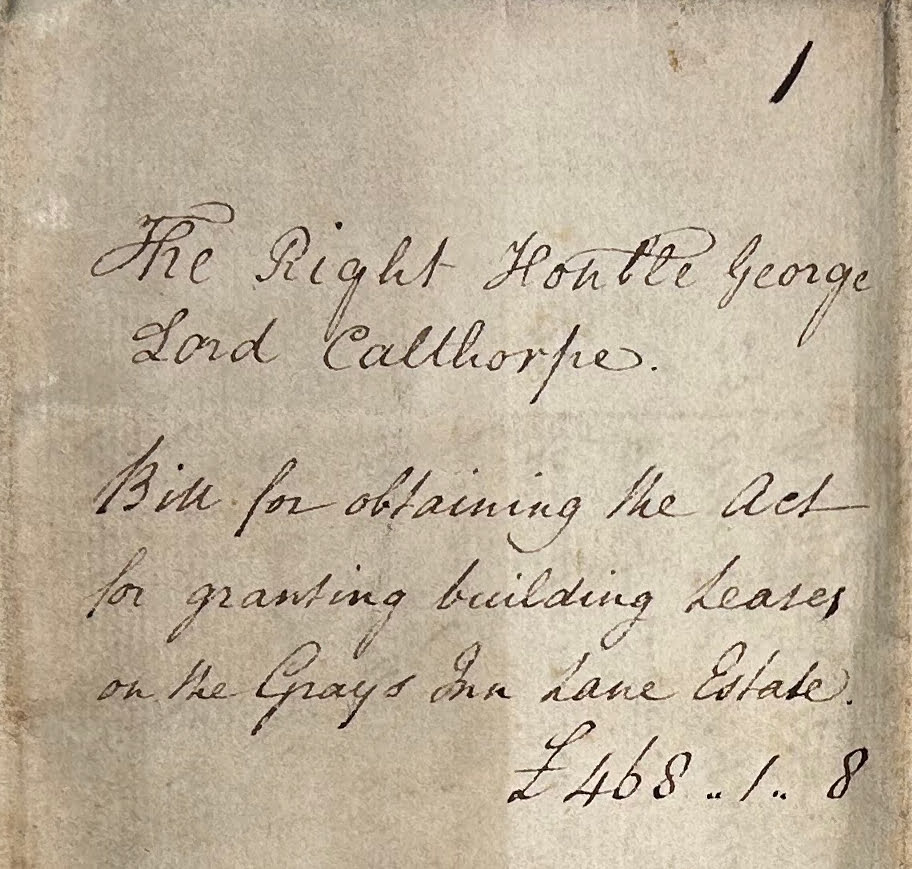 1
The Right Honble George
Lord Calthorpe.
Bill for obtaining the Act
for granting building Leases
on the Grays Inn Lane Estate.
£468..1..8